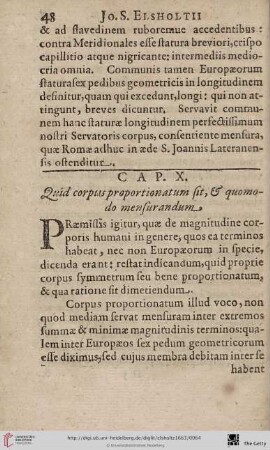 48 Jo. S. ELSHOLTII
& ad flavedinem ruboremue accedentibus:
contra Meridionales esse statura breviori, crispo
capillitio atque nigricante; intermediis medio-
cria omnia. Communis tamen Europæorum
statura sex pedibus geometricis in longitudinem
definitur, quam qui excedunt, longi: qui non at-
tingunt, breves dicuntur. Servavit commu-
nem hanc staturæ longitudinem perfectissimum
nostri Servatoris corpus, consentiente mensura,
quæ Romæ adhuc in æde S. Joannis Lateranen-
sis ostenditur.
CAP. X.
Quid corpus proportionatum sit, & quomo-
do mensurandum.
PRæmissis igitur, quæ de magnitudine cor-
poris humani in genere, quos ea terminos
habeat, nec non Europæorum in specie,
dicenda erant: restat indicandum, quid proprie
corpus symmetrum seu bene proportionatum,
& qua ratione sit dimetiendum.
Corpus proportionatum illud voco, non
quod mediam servat mensuram inter extremos
summæ & minimæ magnitudinis terminos: qua-
lem inter Europæos sex pedum geometricorum
esse diximus, sed cujus membra debitam inter se
habent
http://digi.ub.uni-heidelberg.de/diglit/elsholtz1663/0064
The Getty